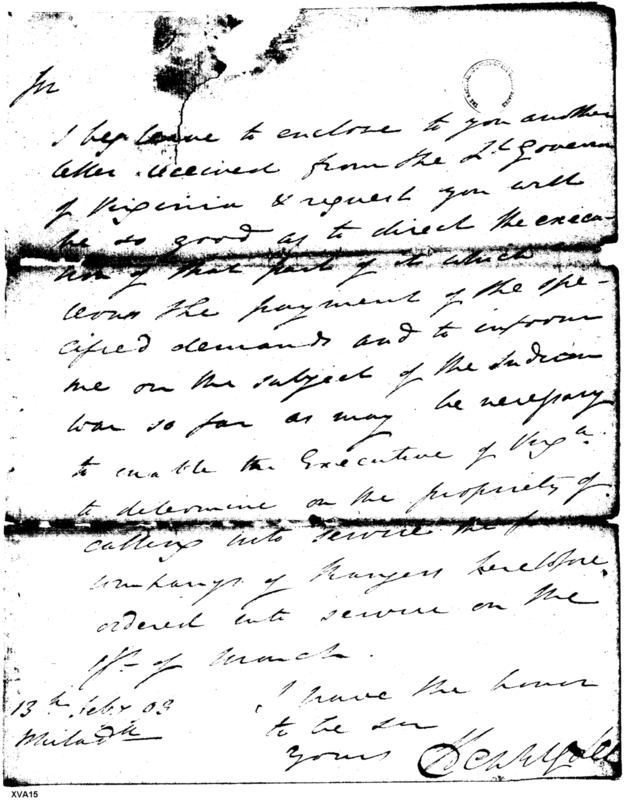 Sir
I beg leave to enclose to you another
letter received from the Lt Govern
of Virginia & request you will
be so good as to direct the execu-
tion of that part of it which
the payment of the spe-
cified demands and to inform
me on the subject of the Indian
War so far as may be necessary
to enable the Executive of Virga.
to determine on the propriety of
calling into service the
companys of Rangers heretofore
ordered into service on the
of March.
I have the honor
13th Feby 93
to be sir
Philadh
yours
XVA15